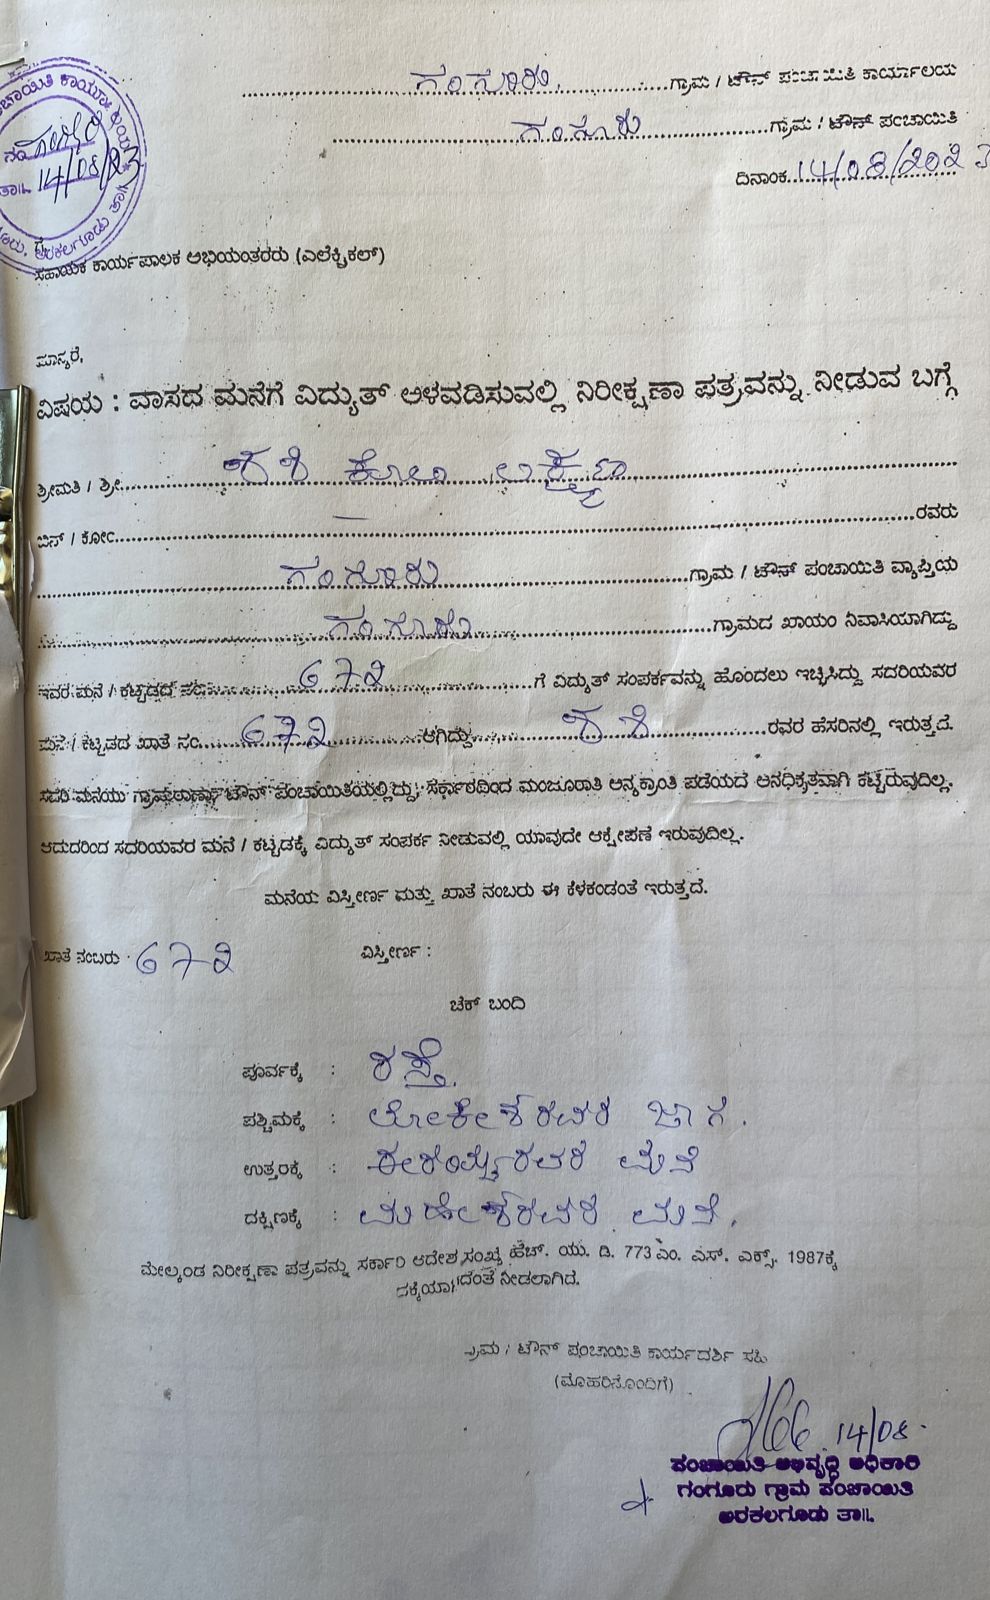 ಗಂಗೂರು ಗ್ರಾಮ / ಟೌನ್ ಪಂಚಾಯಿತಿ ಕಾರ್ಯಾಲಯ
ಗಂಗೂರು ಗ್ರಾಮ / ಟೌನ್ ಪಂಚಾಯಿತಿ
ದಿನಾಂಕ 14/08/2023
ನಂ
ತಾ॥ 14/08/23
ಅರಕಲಗೂಡು
ಗೆ,
ಸಹಾಯಕ ಕಾರ್ಯಪಾಲಕ ಅಭಿಯಂತರರು (ಎಲೆಕ್ಟ್ರಿಕಲ್)
ಮಾನ್ಯರೆ,
ವಿಷಯ : ವಾಸದ ಮನೆಗೆ ವಿದ್ಯುತ್ ಅಳವಡಿಸುವಲ್ಲಿ ನಿರೀಕ್ಷಣಾ ಪತ್ರವನ್ನು ನೀಡುವ ಬಗ್ಗೆ
ಶ್ರೀಮತಿ / ಶ್ರೀ ಶಶಿ ಕೋಂ ಲಕ್ಷ್ಮಣ
ಬಿನ್ / ಕೋಂ — ರವರು
ಗಂಗೂರು ಗ್ರಾಮ / ಟೌನ್ ಪಂಚಾಯಿತಿ ವ್ಯಾಪ್ತಿಯ
ಗಂಗೂರು ಗ್ರಾಮದ ಖಾಯಂ ನಿವಾಸಿಯಾಗಿದ್ದು
ಇವರ ಮನೆ / ಕಟ್ಟಡದ ನಂ 672 ಗೆ ವಿದ್ಯುತ್ ಸಂಪರ್ಕವನ್ನು ಹೊಂದಲು ಇಚ್ಛಿಸಿದ್ದು ಸದರಿಯವರ
ಮನೆ / ಕಟ್ಟಡದ ಖಾತೆ ನಂ 672 ಆಗಿದ್ದು ಶಶಿ ರವರ ಹೆಸರಿನಲ್ಲಿ ಇರುತ್ತದೆ.
ಸದರಿ ಮನೆಯು ಗ್ರಾಮಠಾಣಾ / ಟೌನ್ ಪಂಚಾಯಿತಿಯಲ್ಲಿದ್ದು ಸರ್ಕಾರದಿಂದ ಮಂಜೂರಾತಿ ಅನ್ಯಕ್ರಾಂತಿ ಪಡೆಯದೆ ಅನಧಿಕೃತವಾಗಿ ಕಟ್ಟಿರುವುದಿಲ್ಲ.
ಆದುದರಿಂದ ಸದರಿಯವರ ಮನೆ / ಕಟ್ಟಡಕ್ಕೆ ವಿದ್ಯುತ್ ಸಂಪರ್ಕ ನೀಡುವಲ್ಲಿ ಯಾವುದೇ ಆಕ್ಷೇಪಣೆ ಇರುವುದಿಲ್ಲ.
ಮನೆಯ ವಿಸ್ತೀರ್ಣ ಮತ್ತು ಖಾತೆ ನಂಬರು ಈ ಕೆಳಕಂಡಂತೆ ಇರುತ್ತದೆ.
ಖಾತೆ ನಂಬರು : 672 ವಿಸ್ತೀರ್ಣ :
ಚೆಕ್ ಬಂದಿ
ಪೂರ್ವಕ್ಕೆ : ರಸ್ತೆ.
ಪಶ್ಚಿಮಕ್ಕೆ : ಲೋಕೇಶರವರ ಜಾಗ.
ಉತ್ತರಕ್ಕೆ : ಈರಯ್ಯರವರ ಮನೆ
ದಕ್ಷಿಣಕ್ಕೆ : ಮಹೇಶರವರ ಮನೆ.
ಮೇಲ್ಕಂಡ ನಿರೀಕ್ಷಣಾ ಪತ್ರವನ್ನು ಸರ್ಕಾರಿ ಆದೇಶ ಸಂಖ್ಯೆ ಹೆಚ್. ಯು. ಡಿ. 773 ಎಂ. ಎಸ್. ಎಕ್ಸ್. 1987ಕ್ಕೆ
ನೀಡಲಾಗಿದೆ.
ಗ್ರಾಮ / ಟೌನ್ ಪಂಚಾಯಿತಿ ಕಾರ್ಯದರ್ಶಿ ಸಹಿ
(ಮೊಹರಿನೊಂದಿಗೆ)
14/08
ಪಂಚಾಯಿತಿ ಅಭಿವೃದ್ಧಿ ಅಧಿಕಾರಿ
ಗಂಗೂರು ಗ್ರಾಮ ಪಂಚಾಯಿತಿ
ಅರಕಲಗೂಡು ತಾ॥